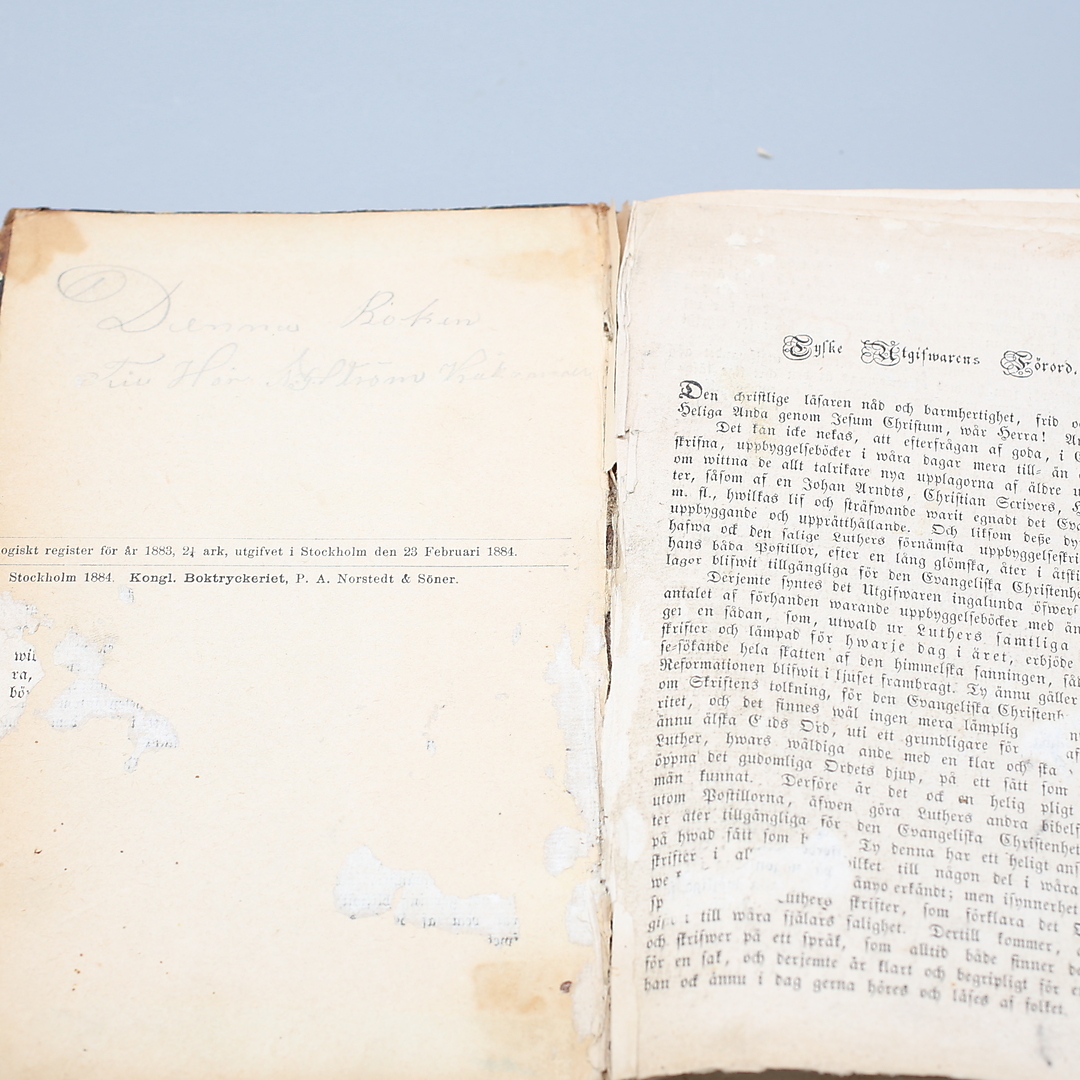 Denna Boken
Hör
ogiskt register för år 1883, 2¼ ark, utgifvet i Stockholm den 23 Februari 1884.
Stockholm 1884. Kongl. Boktryckeriet, P. A. Norstedt & Söner.
ra,
Tyske Utgifwarens Förord.
Den christlige läsaren nåd och barmhertighet, frid
Heliga Anda genom Jesum Christum, wår Herra!
Det kan icke nekas, att efterfrågan af goda, i
skrifna, uppbyggelseböcker i wåra dagar mera till- än
om wittna de allt talrikare nya upplagorna af äldre
ter, såsom af en Johan Arndts, Christian Scrivers,
m. fl., hwilkas lif och sträfwande warit egnadt det
uppbyggande och upprätthållande. Och liksom deße
hafwa ock den salige Luthers förnämsta
hans båda Postillor, efter en lång glömska, åter i
lagor blifwit tillgängliga för den Evangeliska
Derjemte syntes det Utgifwaren ingalunda
antalet af förhanden warande uppbyggelseböcker med
get en sådan, som, utwald ur Luthers samtliga
skrifter och lämpad för hwarje dag i året, erbjöde
se-sökande hela skatten af den himmelska sanningen,
Reformationen blifwit i ljuset frambragt. Ty ännu gäller
om Skriftens tolkning, för den Evangeliska
ritet, och det finnes wäl ingen mera lämplig
ännu älska Ord, uti ett grundligare för
Luther, hwars wäldiga ande med en klar och
öppna det gudomliga Ordets djup, på ett sätt som
män kunnat. Derföre är det ock en helig pligt
utom Postillorna, äfwen göra Luthers andra
ter åter tillgängliga för den Evangeliska
på hwad sätt som Ty denna har ett heligt
skrifter i till någon del i wåra
we ånyo erkändt; men
sp skrifter, som förklara det
till wåra själars salighet. Dertill kommer,
och skrifwer på ett språk, som alltid både finner
för en sak, och derjemte är klart och begripligt för
han ock ännu i dag gerna höres och läses af folket.